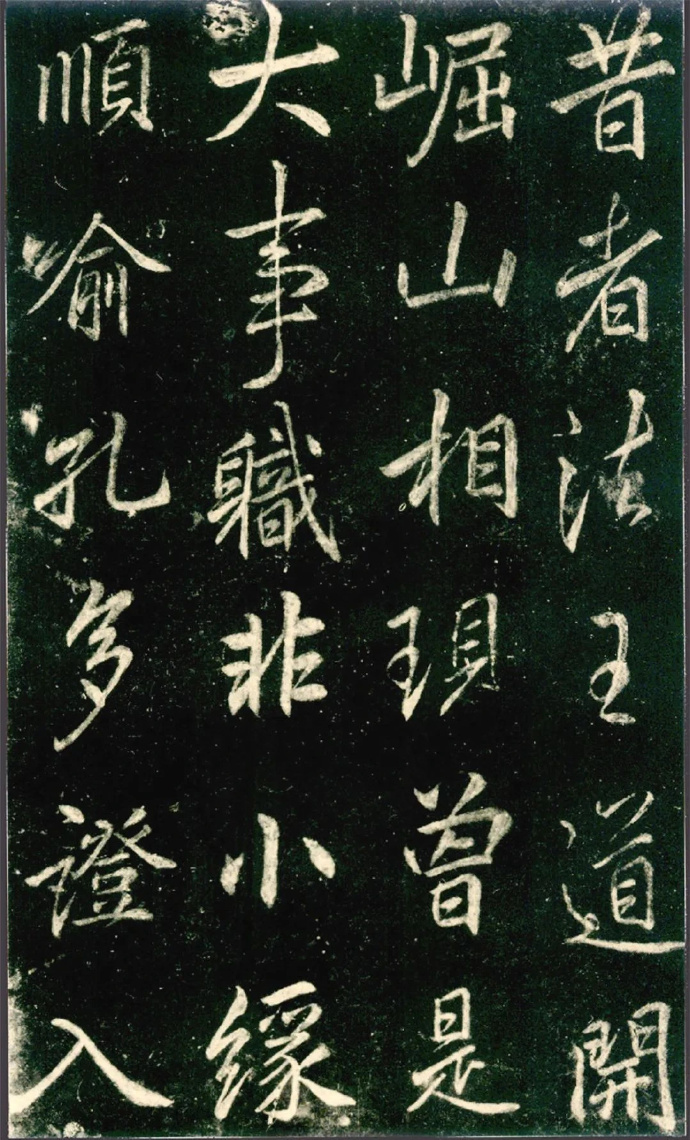 昔者法王道開
崛山相現曾是
大事職非小緣
順喻孔多證入